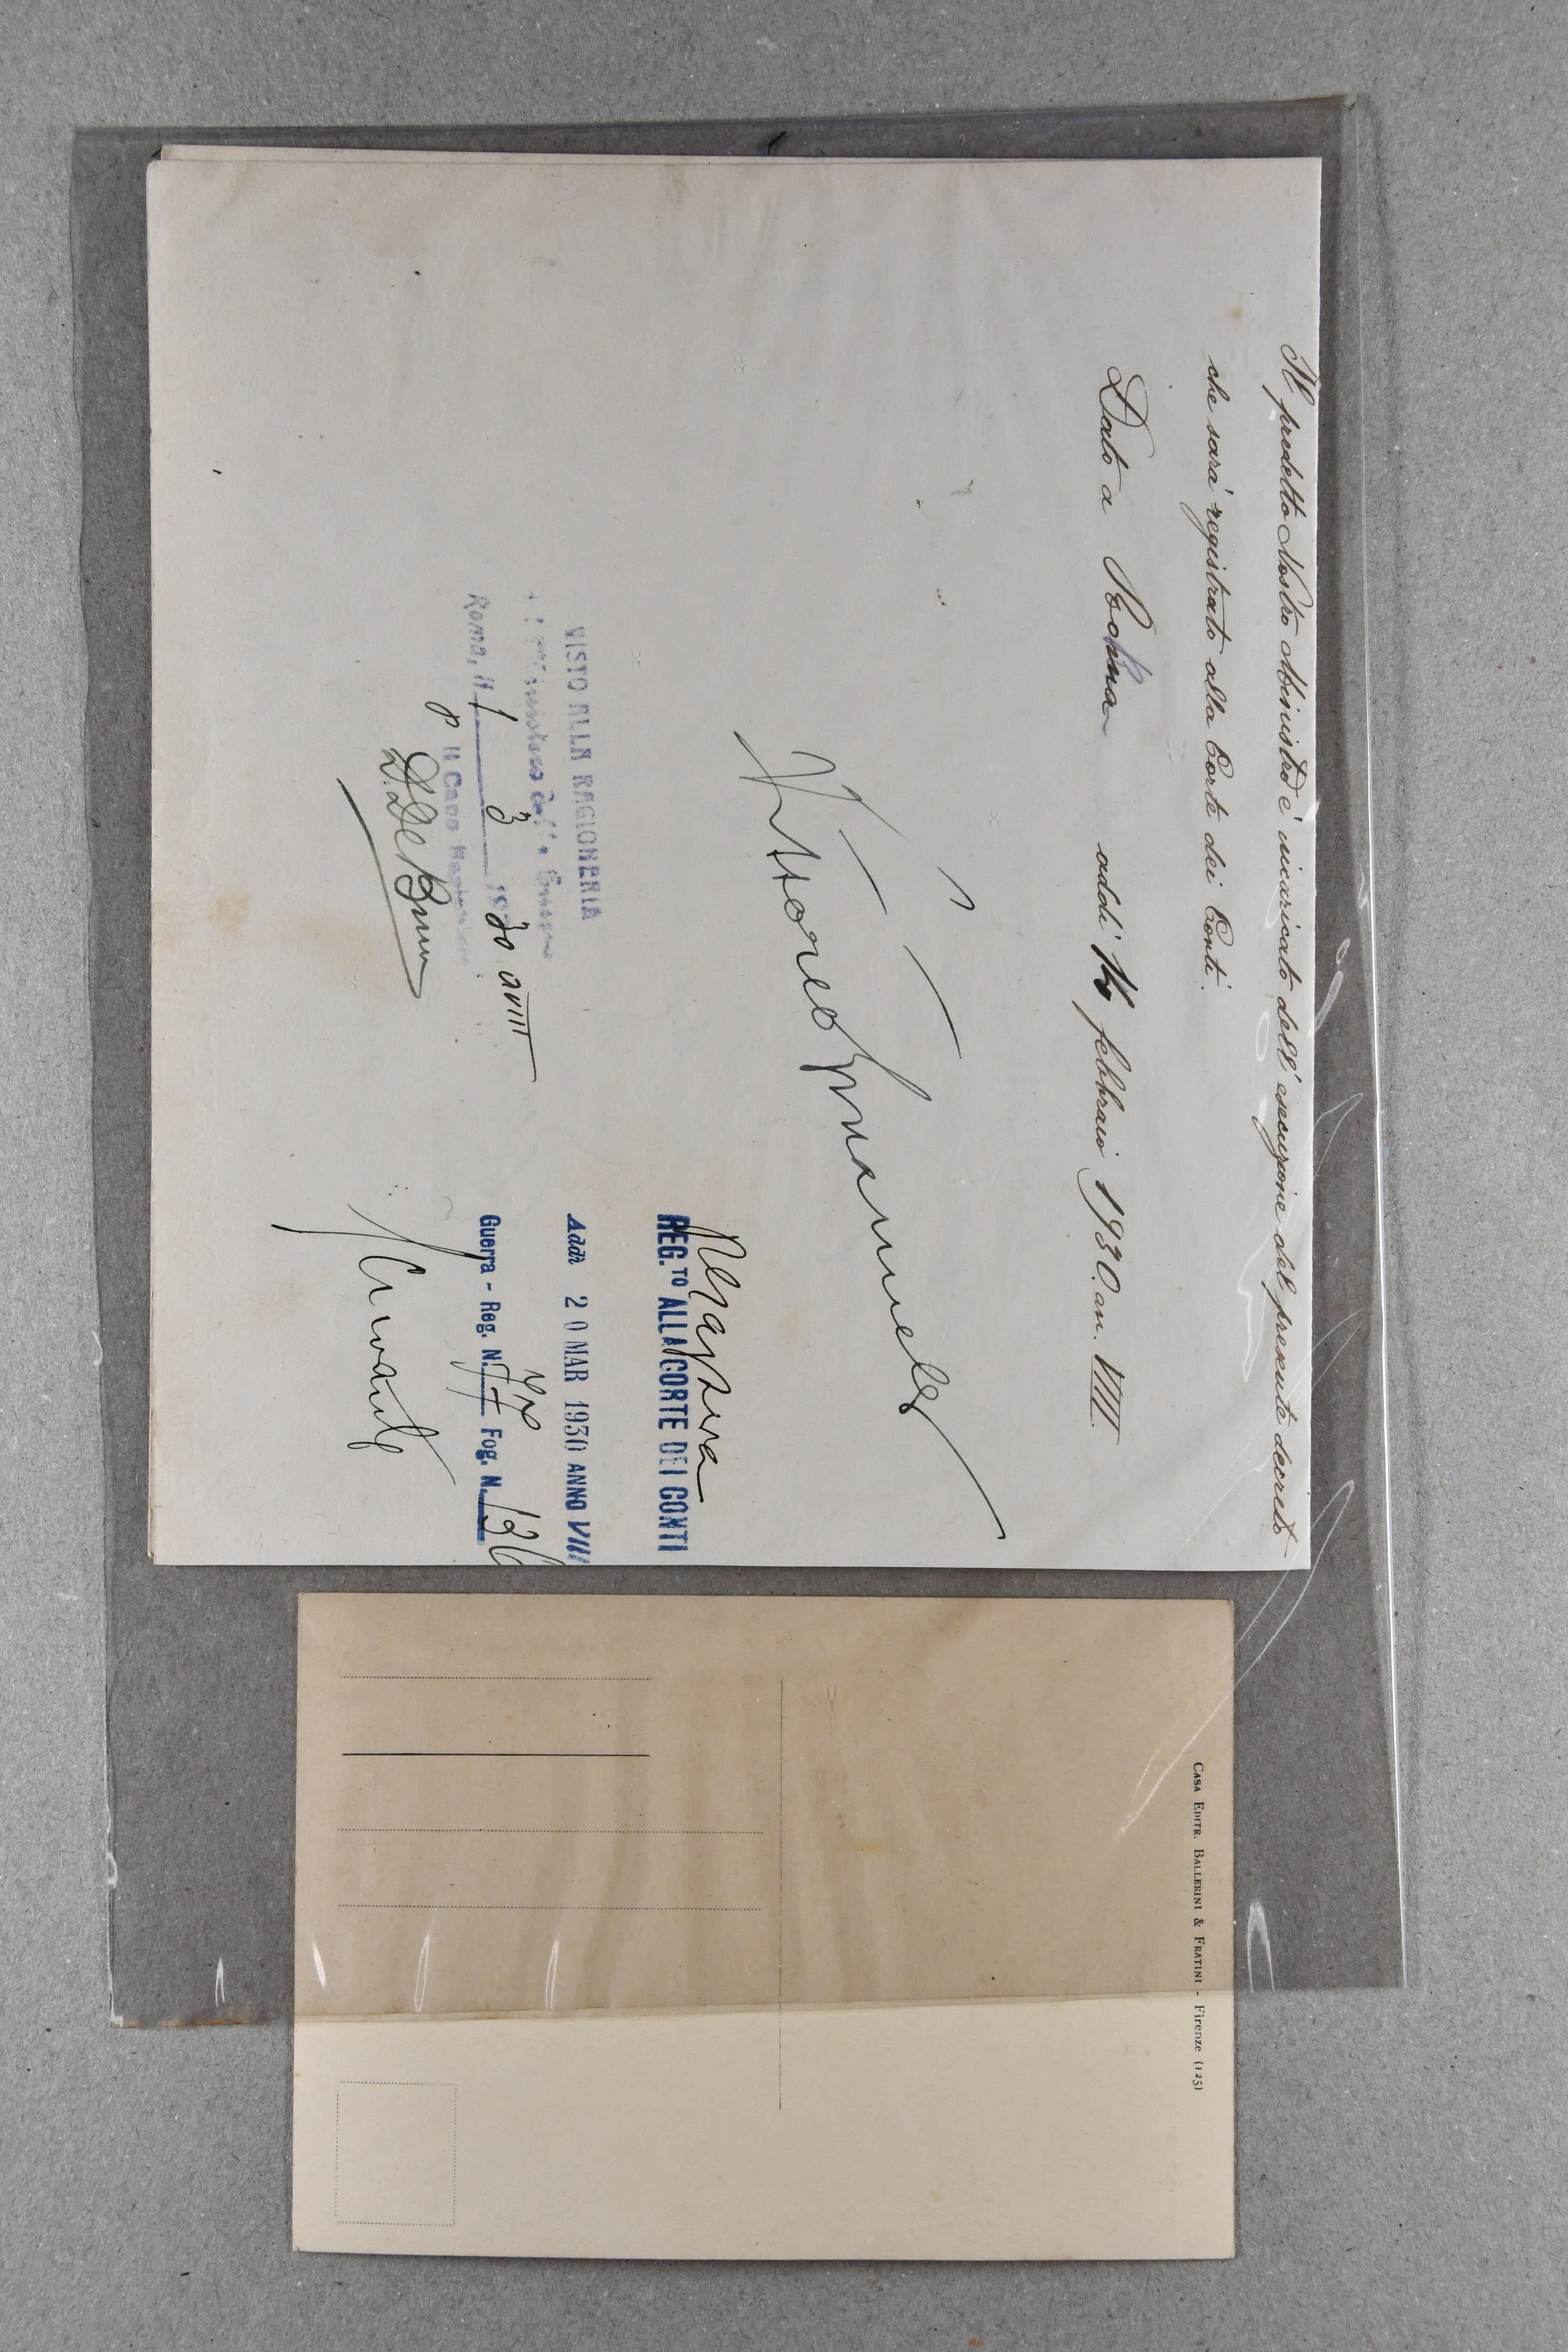 Il predetto Nostro Ministro è incaricato dell'esecuzione del presente decreto
che sarà registrato alla Corte dei Conti.
Dato a Roma addì 14 febbraio 1930. an. VIII.
Vittorio Emanuele
VISTO ALLA RAGIONERIA
Roma, il 1 3 1930 a VIII
p Il Capo
REG.TO ALLA CORTE DEI CONTI
Addì 20 MAR 1930 ANNO VIII
Guerra - Reg. N. Fog. N.
CASA EDITR. BALLERINI & FRATINI - Firenze (125)